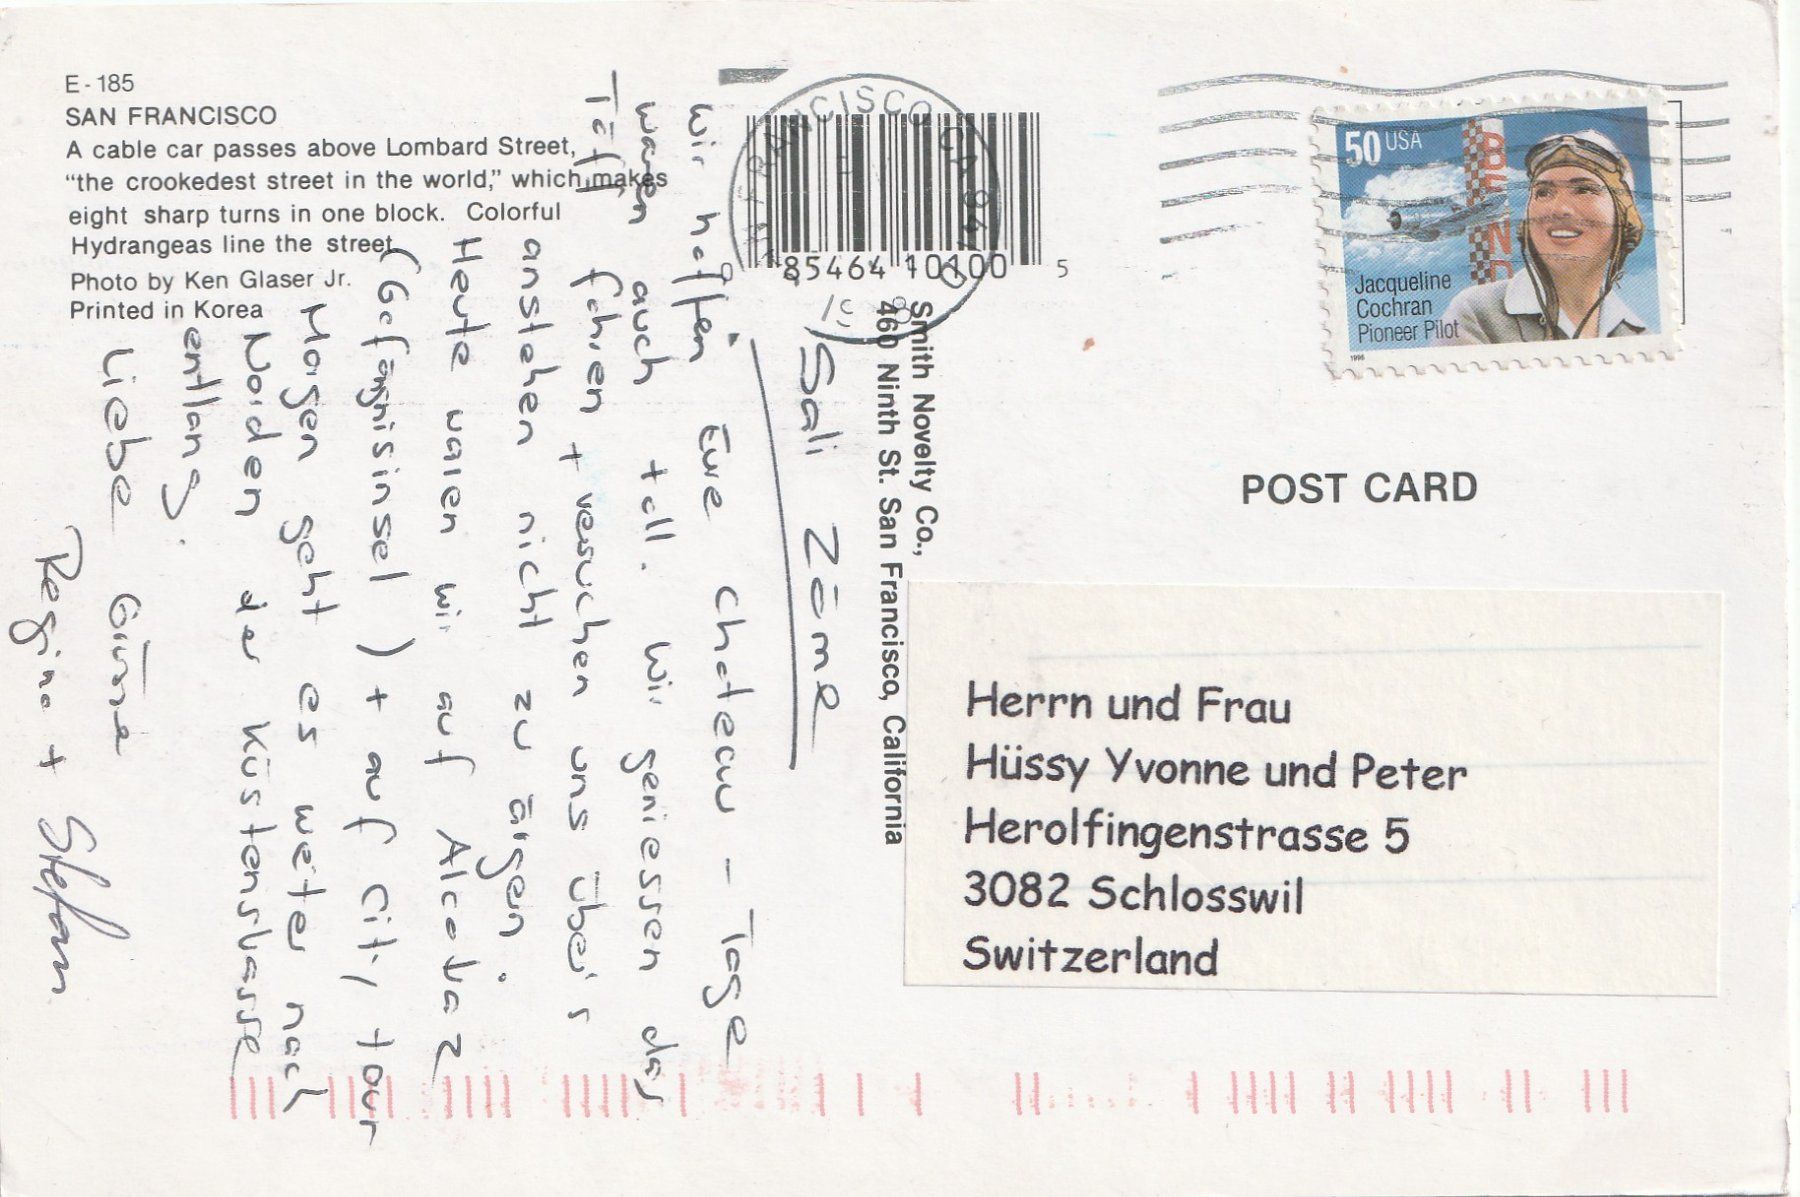 E-185
SAN FRANCISCO
A cable car passes above Lombard Street,
“the crookedest street in the world,” which makes
eight sharp turns in one block. Colorful
Hydrangeas line the street.
Photo by Ken Glaser Jr.
Printed in Korea
Sali Zäme
Wir hoffen Eure Chateau - Tage
waren auch toll. Wir geniessen das
Töff fahren + versuchen uns über's
anstehen nicht zu ärgern.
Heute waren wir auf Alcatraz
(Gefängnisinsel) + auf City tour
Morgen geht es weiter nach
Norden der Küstenstrasse
entlang.
Liebe Grüsse
Regina + Stefan
SAN FRANCISCO CA
85464 10100 5
Smith Novelty Co.,
460 Ninth St. San Francisco, California
50 USA
BEND
Jacqueline
Cochran
Pioneer Pilot
1996
POST CARD
Herrn und Frau
Hüssy Yvonne und Peter
Herolfingenstrasse 5
3082 Schlosswil
Switzerland